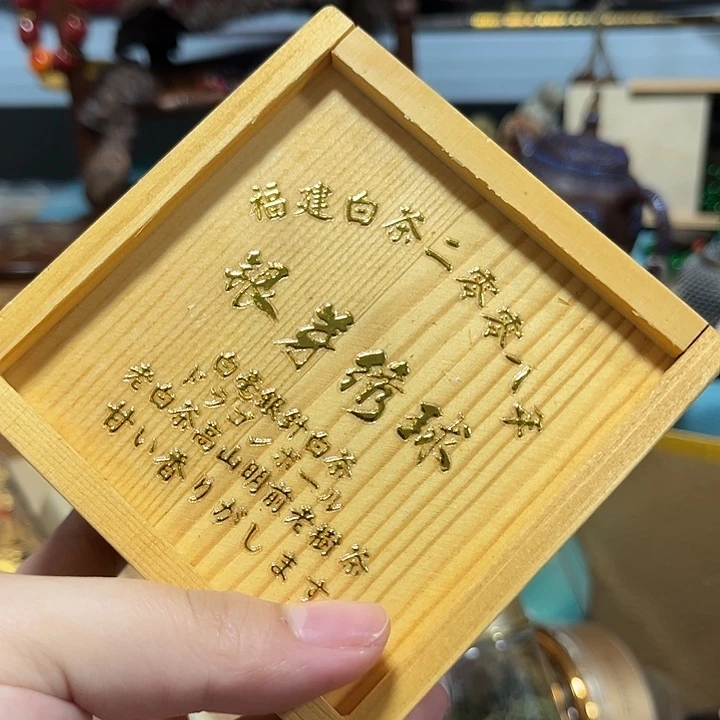 福建白茶二零零八年
銀芽綉球
白毫銀針白茶
ドラゴンボール
老白茶高山明前老樹茶
甘い香りがします